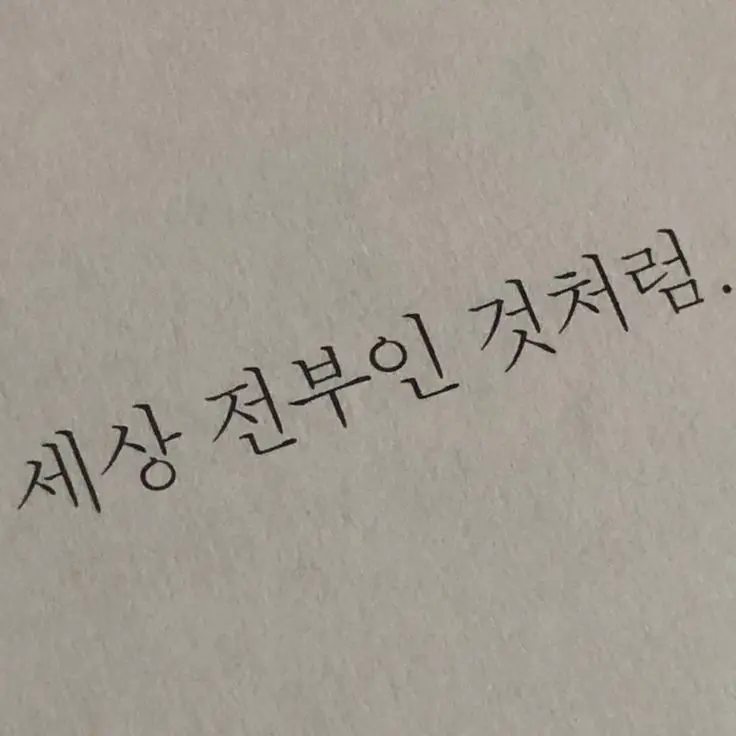 세상 전부인 것처럼.